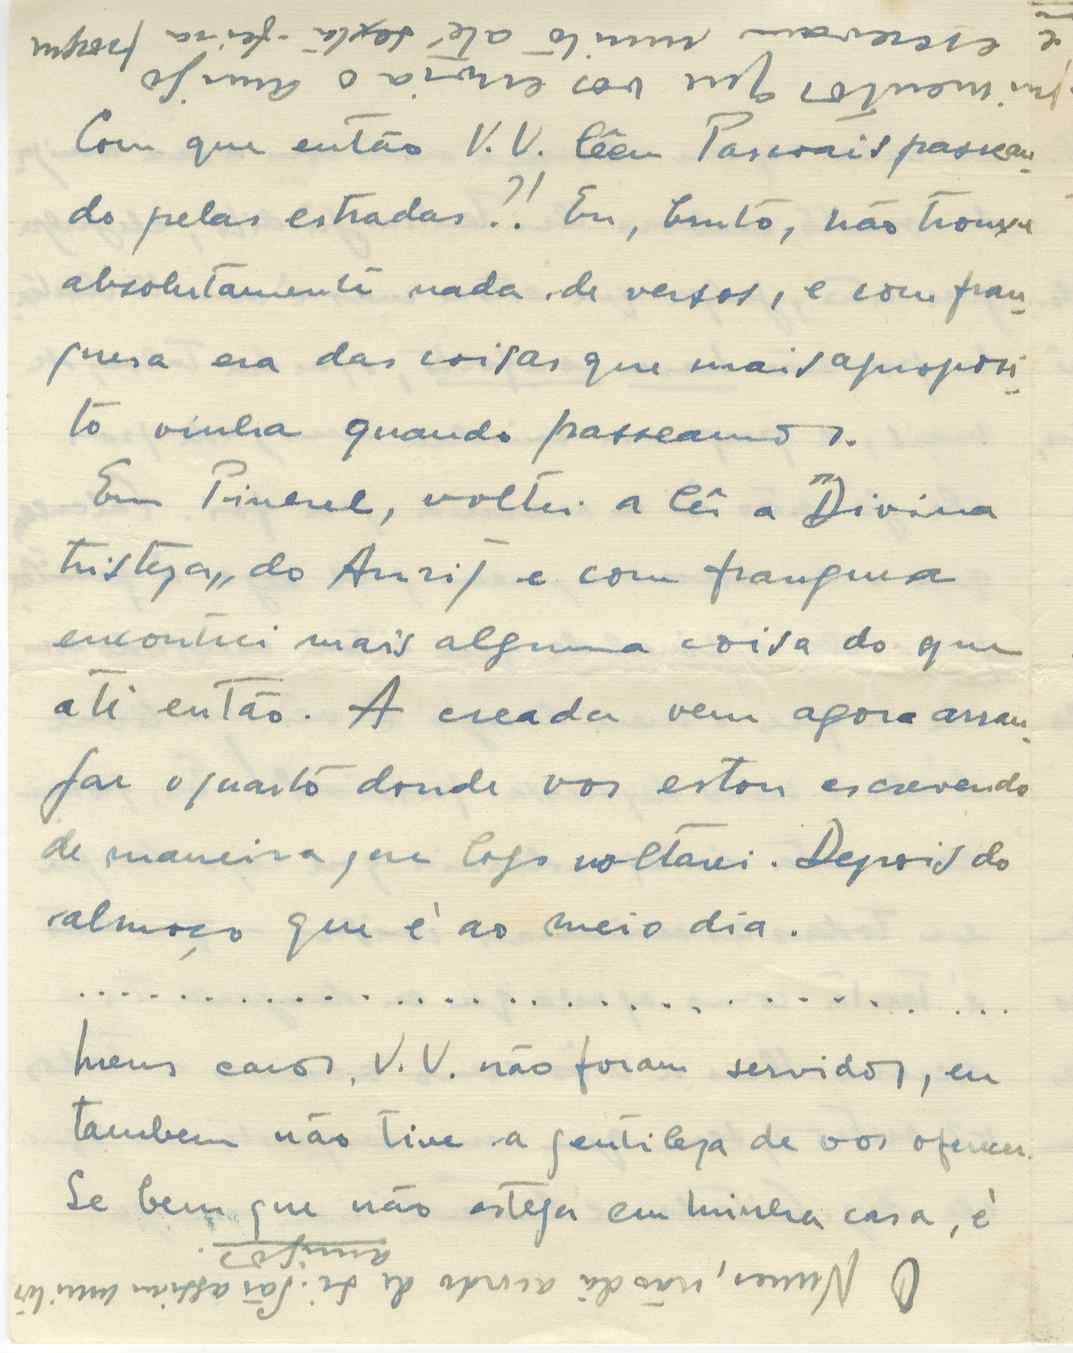 e escrevam muito até sexta-feira porque
primentos que vos envia o amigo
Com que então V.V. lêem Pascoais passean-
do pelas estradas?! Eu, bruto, não trouxe
absolutamente nada de versos, e com fran-
quesa era das coisas que mais aproposi-
to vinha quando passeamos.
Em Pinhel, voltei a lêr a "Divina
tristeza„ do Anrij e com franquesa
encontrei mais alguma coisa do que
até então. A creada vem agora arran-
jar o quarto donde vos estou escrevendo
de maneira que logo voltarei. Depois do
almoço que é ao meio dia.
. . . . . . . . . . . . . . . . . . . . . . . . . . .
Meus caros, V.V. não foram servidos, eu
tambem não tive a gentileza de vos oferecer.
Se bem que não esteja em minha casa, é
O Nunes, não dá acordo de si. São assim muitos
amigos.